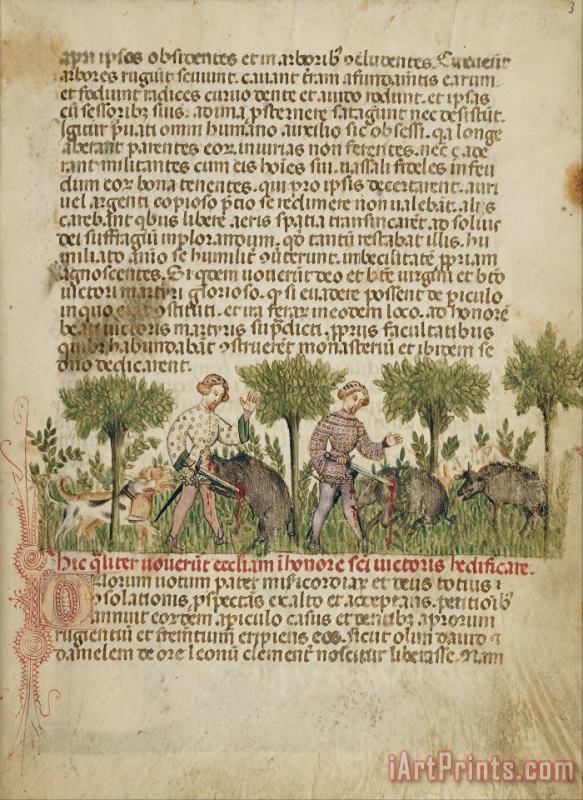 3
apri ipsos obsidentes et in arborib' ɔcludentes. Circuerūt
arbores rugiūt seviunt. cavant tr̄am a fundam̄tis earum
et fodiunt radices curvo dente et avido rodunt. et ipsas
cū sessorib' suis. ad ima p̱sternere satagunt nec desistūt.
Igitur p̱vati omni humano auxilio sic obsessi. q̄a longe
aberant parentes eor. iniurias non ferentes. nec ɔ
rant militantes cum eis hoīes sui. vasalli fideles in feu
dum eor bona tenentes. qui pro ipsis decertarent. auri
vel argenti copioso p̄cio se redimere non valebāt. alis
carebāt q̄bus libere aeris spatia transmearēt. ad solius
dei suffragiū implorandum. qd̄ tantū restabat illis. hu
miliato aīo se humilit̄ ɔverterunt. imbecilitatē p̱priam
agnoscentes. Si q̄dem voverūt deo et bt̄e virgini et bt̄o
victori martyri glorioso. qp̱ si evadere possent de piculo
in quo erāt ɔstituti. et ira ferar in eodem loco. ad honorē
beati victoris martyris sup̱dicti. p̱prijs facultatibus
quib' habundabāt ɔstruerēt monasteriū et ibidem se
dn̄o dedicarent.
hic q̄liter voverūt eccl̄iam ī honore sc̄i victoris hedificare.
Olorum votum pater mis̄icordiar et deus totius
ɔsolationis, p̱spectans ex alto et acceptans. petitiōib'
annuit eor dem a piculo casus et dentib' aprorum
rugientiū et frem̄tium eripiens eos. sicut olim david
danielem de ore leonū clement̄ noscitur liberasse. Nam
iArtPrints.com